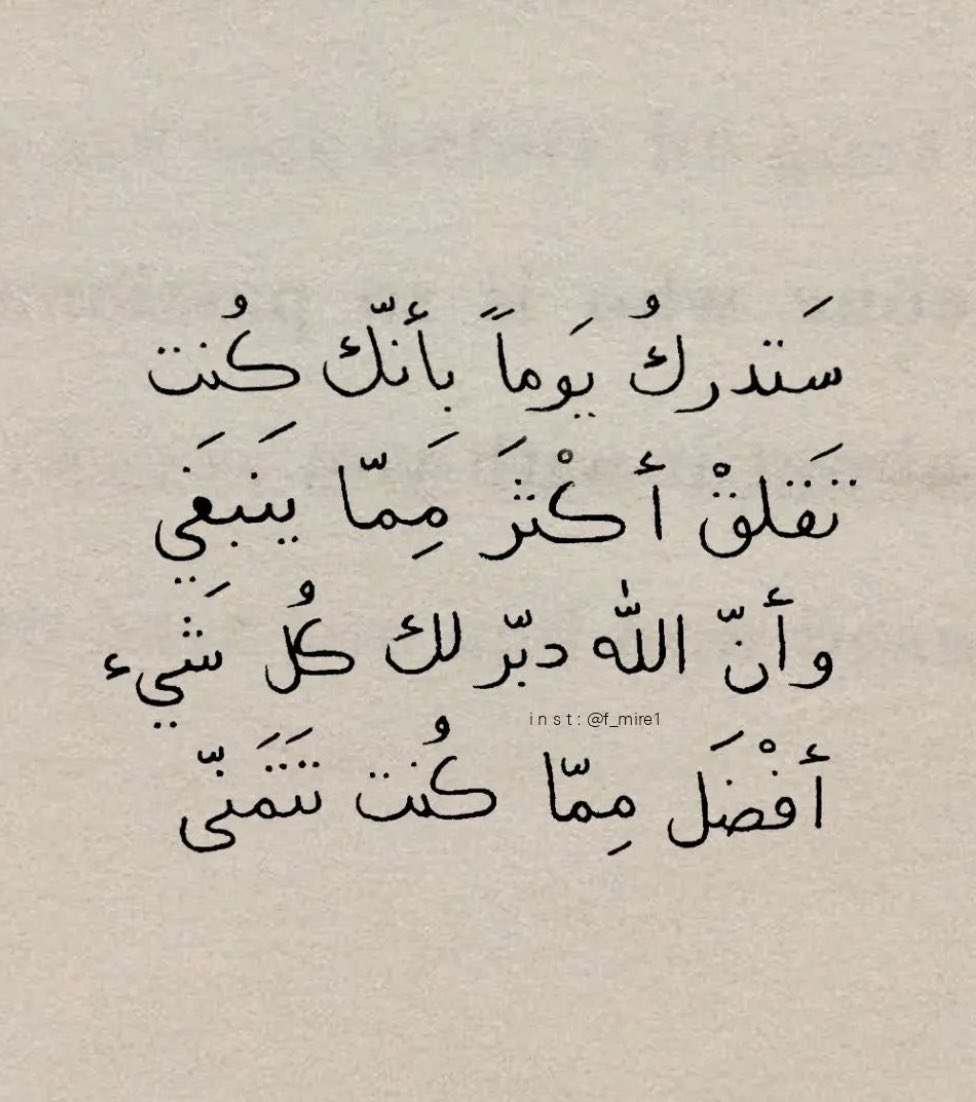 سَتدركُ يَوماً بأنّك كُنت
تَقَلقْ أكْثَرَ مِمَّا يَنبَغَي
وأنّ اللّٰه دبّر لك كُل شَيء
inst: @f_mire1
أفْضَل مِمّا كُنت تَتَمنّى